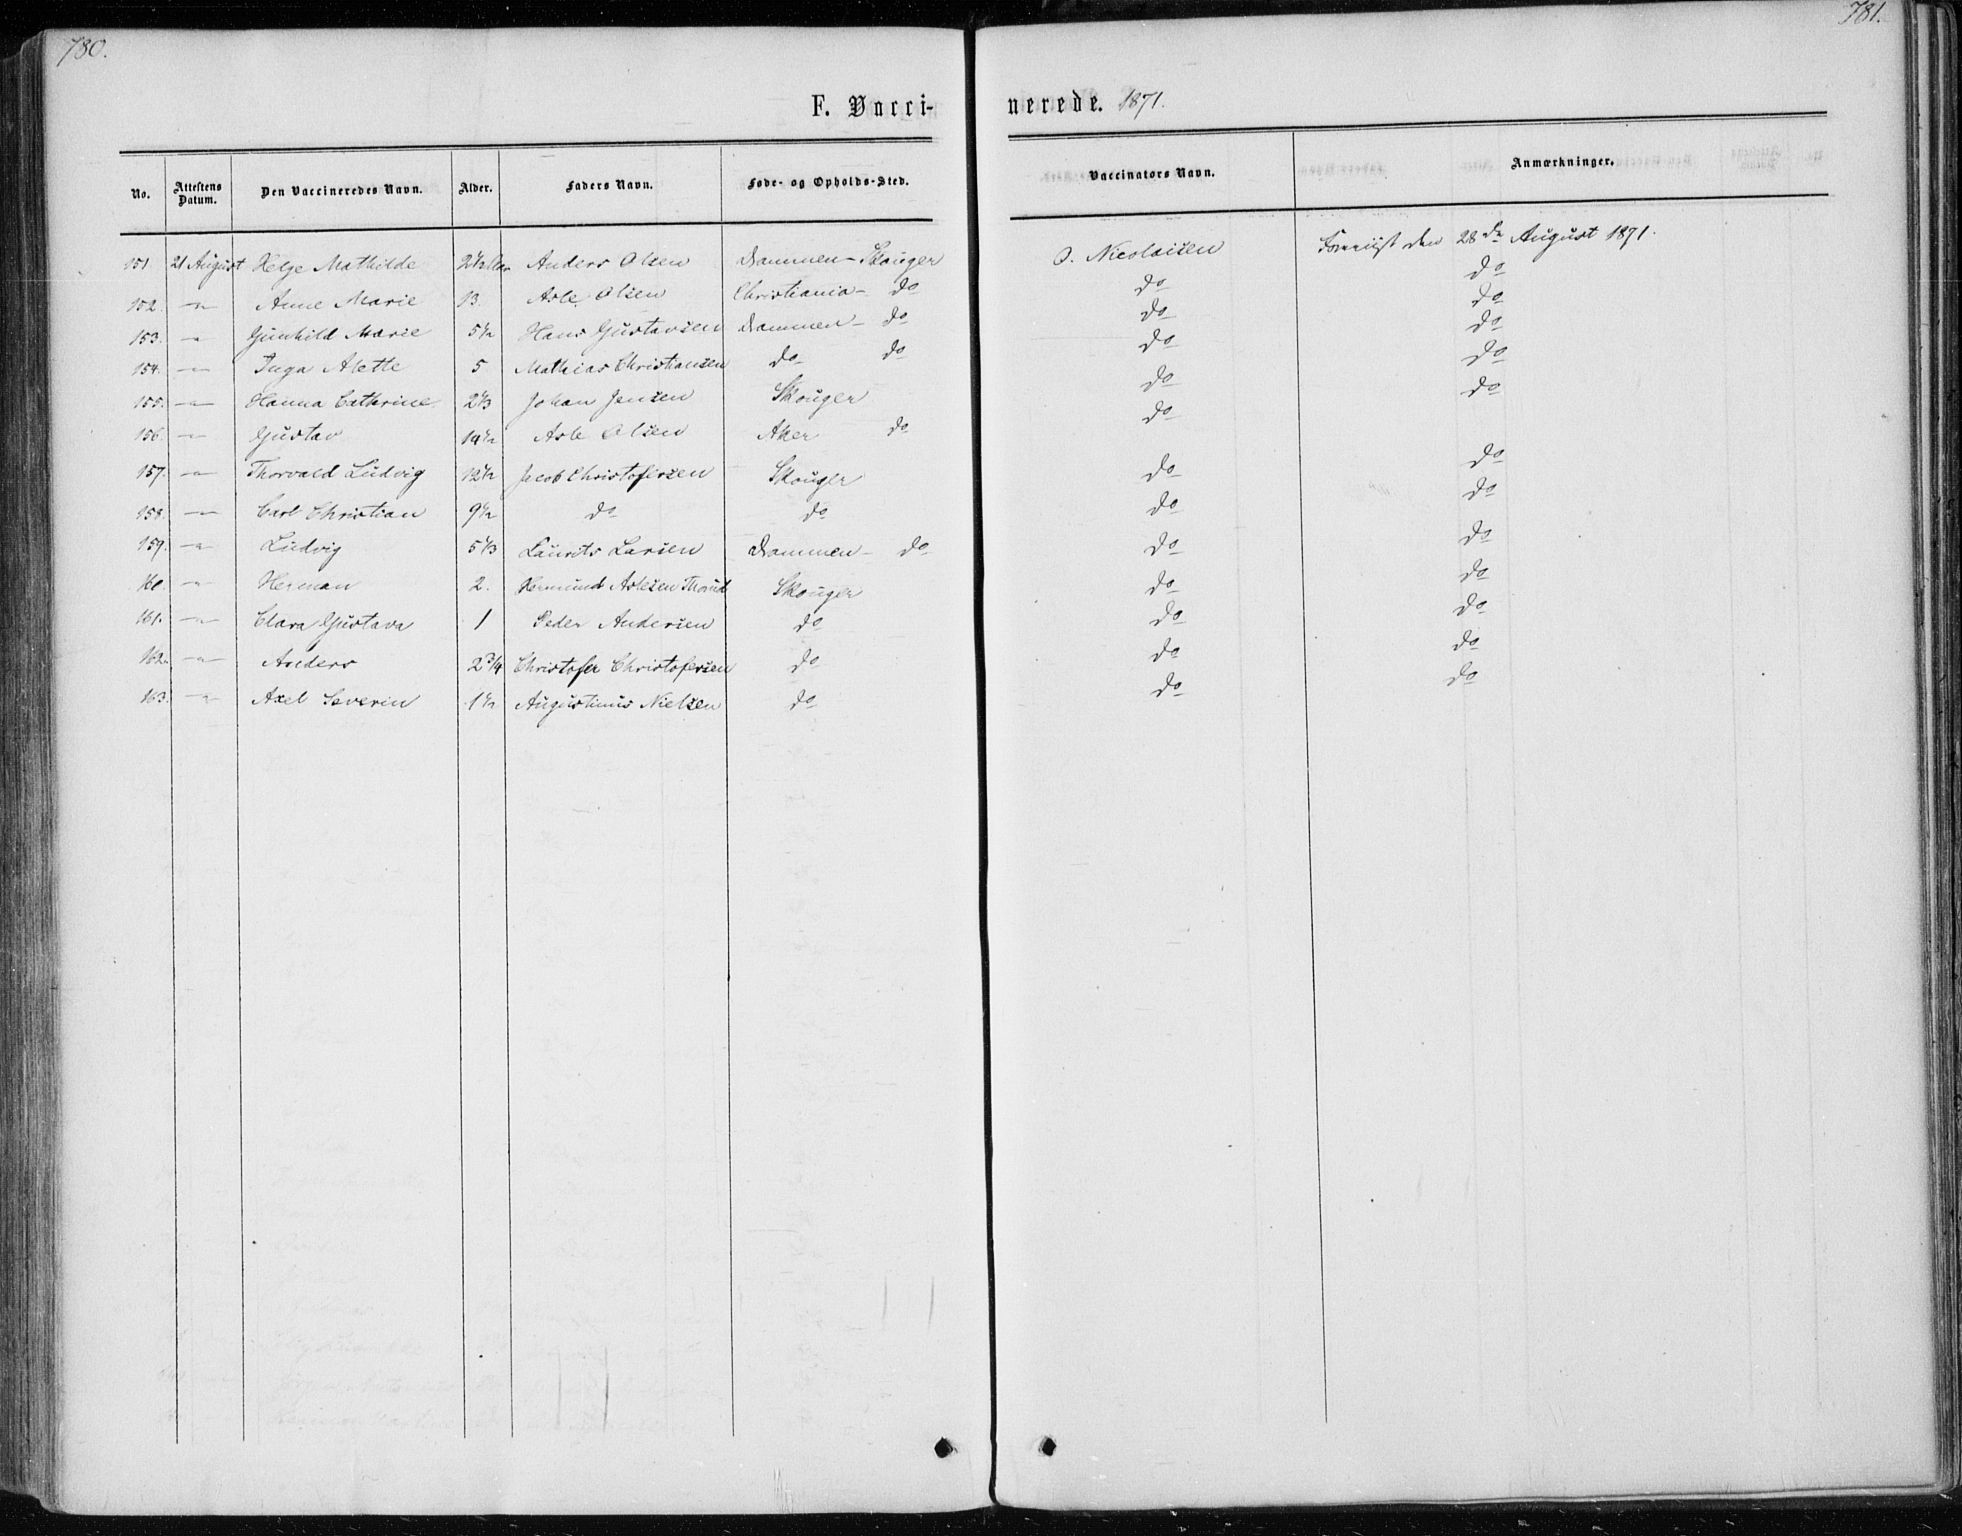 780.
781.
F. Vacci-
nerede. 1871.
No. Attestens Datum. Den Vaccineredes Navn. Alder. Faders Navn. Føde- og Opholds-Sted. Vaccinators Navn. Anmærkninger.
151 21 August Helje Mathilde 2 1/2 Aar Anders Olsen Drammen - Skouger O. Nicolaisen den 28de August 1871.
152. -"- Anne Marie 13. Asle Olsen Christiania - do do do
153. -"- Gunhild Marie 5 1/2 Hans Gustavsen Drammen - do do do
154. -"- Inga Alette 5 Mathias Christiansen do do do do
155. -"- Hanna Cathrine 2 1/3 Johan Jensen Skouger do do
156. -"- Gustav 14 1/2 Asle Olsen Aker do do do
157. -"- Thorvald Ludvig 12 1/2 Jacob Christofersen Skouger do do
158. -"- Carl Christian 9 1/2 do do do do
159. -"- Ludvig 5 1/3 Laurits Larsen Drammen - do do do
160. -"- Herman 2. Hermund Aslesen Skouger do do
161. -"- Clara Gustava 1 Peder Andersen do do do
162. -"- Anders 2 3/4 Christofer Christofersen do do do
163. -"- Axel Severin 1 1/2 Augustinus Nielsen do do do